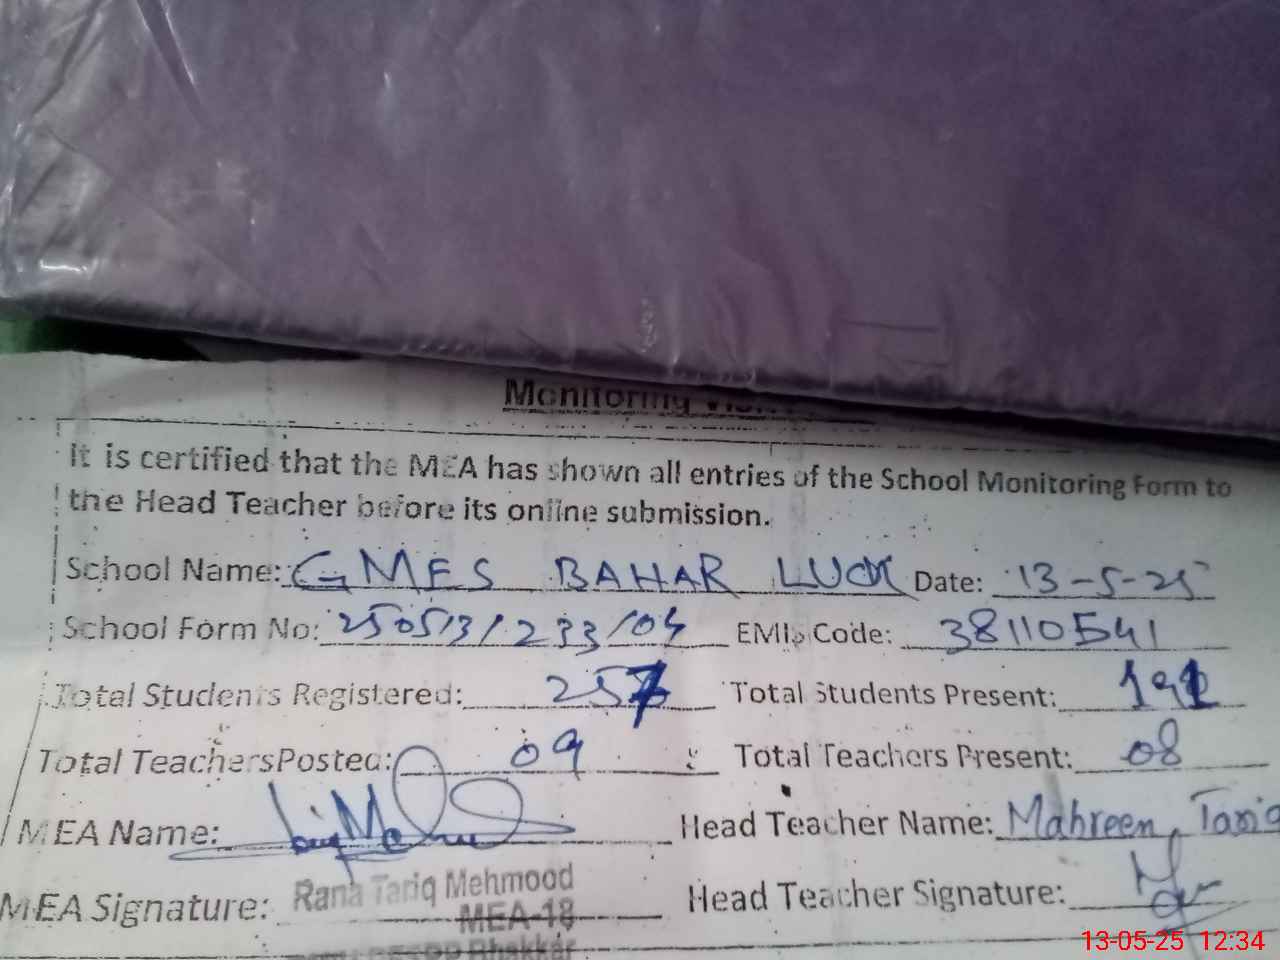 Monitoring
It is certified that the MEA has shown all entries of the School Monitoring Form to
the Head Teacher before its online submission.
School Name: GMES BAHAR LUCK Date: 13-5-25
School Form No: 250513/233/04 EMIS Code: 38110541
Total Students Registered: 257 Total Students Present: 191
Total TeachersPosted: 09 Total Teachers Present: 08
MEA Name: Head Teacher Name: Mahreen Tariq
MEA Signature: Rana Tariq Mehmood Head Teacher Signature:
MEA-18
Bhakkar
13-05-25 12:34